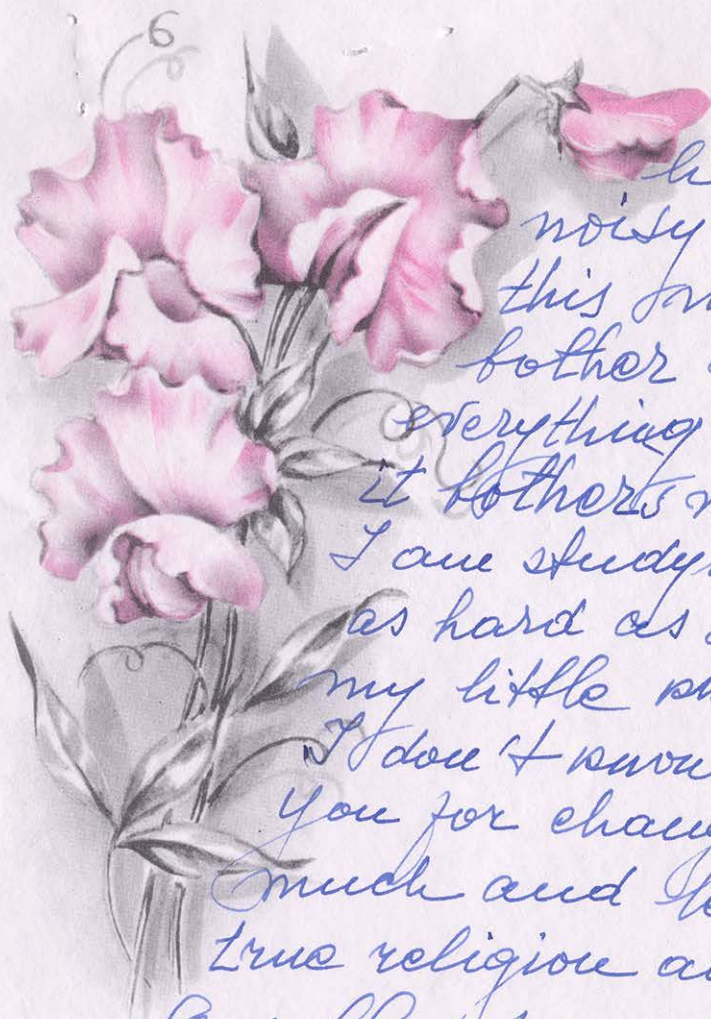 6
h
noisy
this
bother
everything
it bothers
I am study
as hard as
my little
I don't know
you for chang
much and
true religion